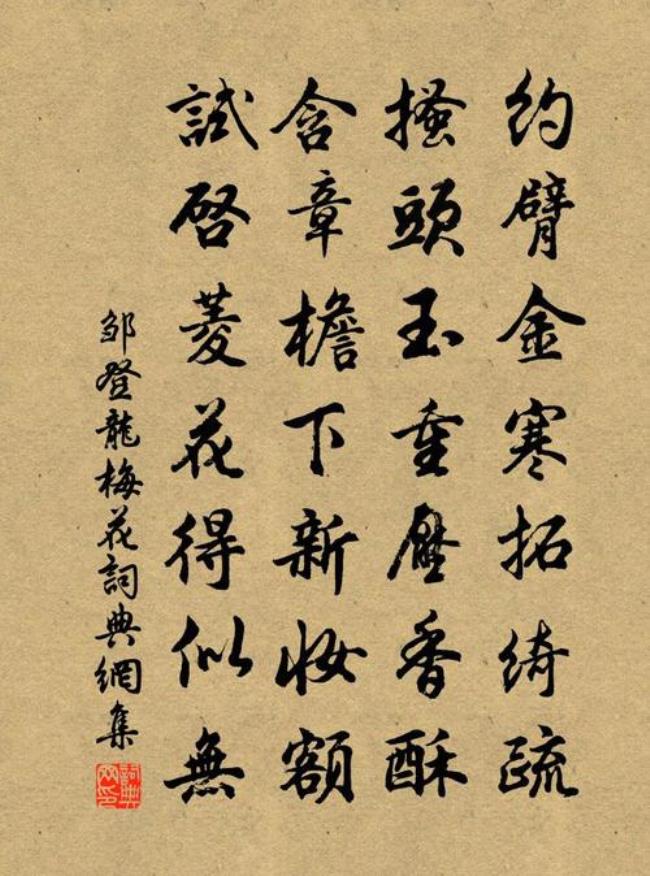 約臂金寒拓綺疏
搔頭玉重壓香酥
含章檐下新妝額
試啓菱花得似無
邹登龍梅花詞典網集
詞典網印